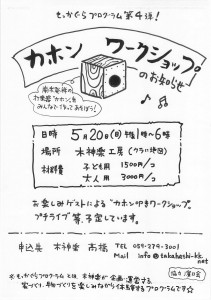 もっかぐらプログラム第4弾!
カホン ワークショップ
のお知らせ
南米発祥の
打楽器"カホン"を
みんなでつくってあそぼう!
日時 5月20日(日)午後1時~6時
場所 木神楽工房(クラハ地図)
材料費 子ども用 1500円/コ
大人用 3000円/コ
お楽しみゲストによる"カホンゆるワークショップ、
プチライブ"等、予定しています。
申込先 木神楽 高橋 TEL 059-279-3001
Mail info@takahashi-kk.
net
協力 濱田舎
※もっかぐらプログラムとは、木神楽が企画・運営する
家づくり、手物づくりを楽しみながら体感するプログラムです☆